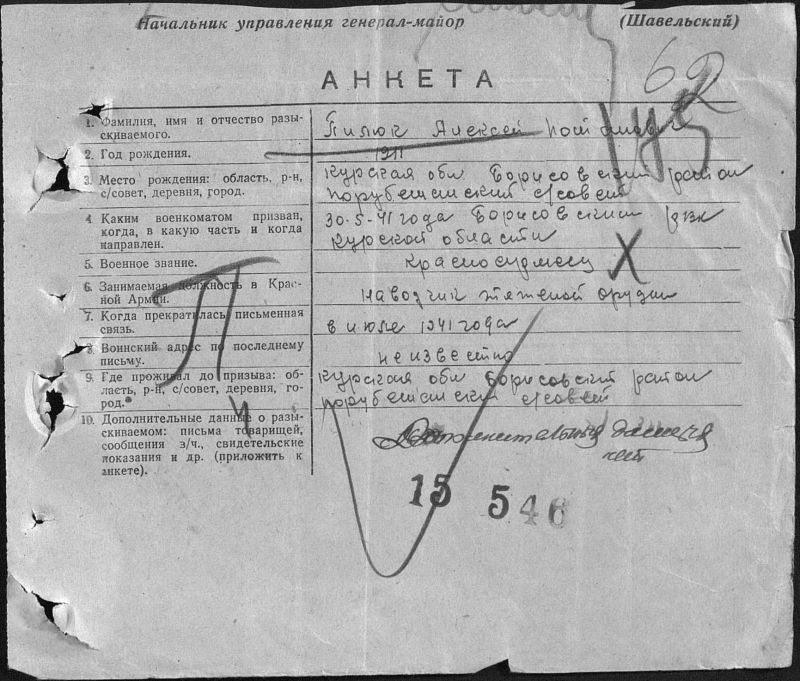 Начальник управления генерал-майор (Шавельский)
62
АНКЕТА
1. Фамилия, имя и отчество разы-
скиваемого.
Пилюк Алексей
2. Год рождения.
1911
3. Место рождения: область, р-н,
с/совет, деревня, город.
Курская обл Борисовский район
порубежанский с/совет
4. Каким военкоматом призван,
когда, в какую часть и когда
направлен.
30-5-41 года Борисовским рвк
Курской области
5. Военное звание.
красноармеец X
6. Занимаемая должность в Крас-
ной Армии.
наводчик тяжелой орудии
7. Когда прекратилась письменная
связь.
в июле 1941 года
8. Воинский адрес по последнему
письму.
неизвестно
9. Где проживал до призыва: об-
ласть, р-н, с/совет, деревня, го-
род.
Курская обл Борисовский район
порубежанский с/совет
10. Дополнительные данные о разы-
скиваемом: письма товарищей,
сообщения з/ч., свидетельские
показания и др. (приложить к
анкете).
Дополнительных данных
нет
П
ч
15 546